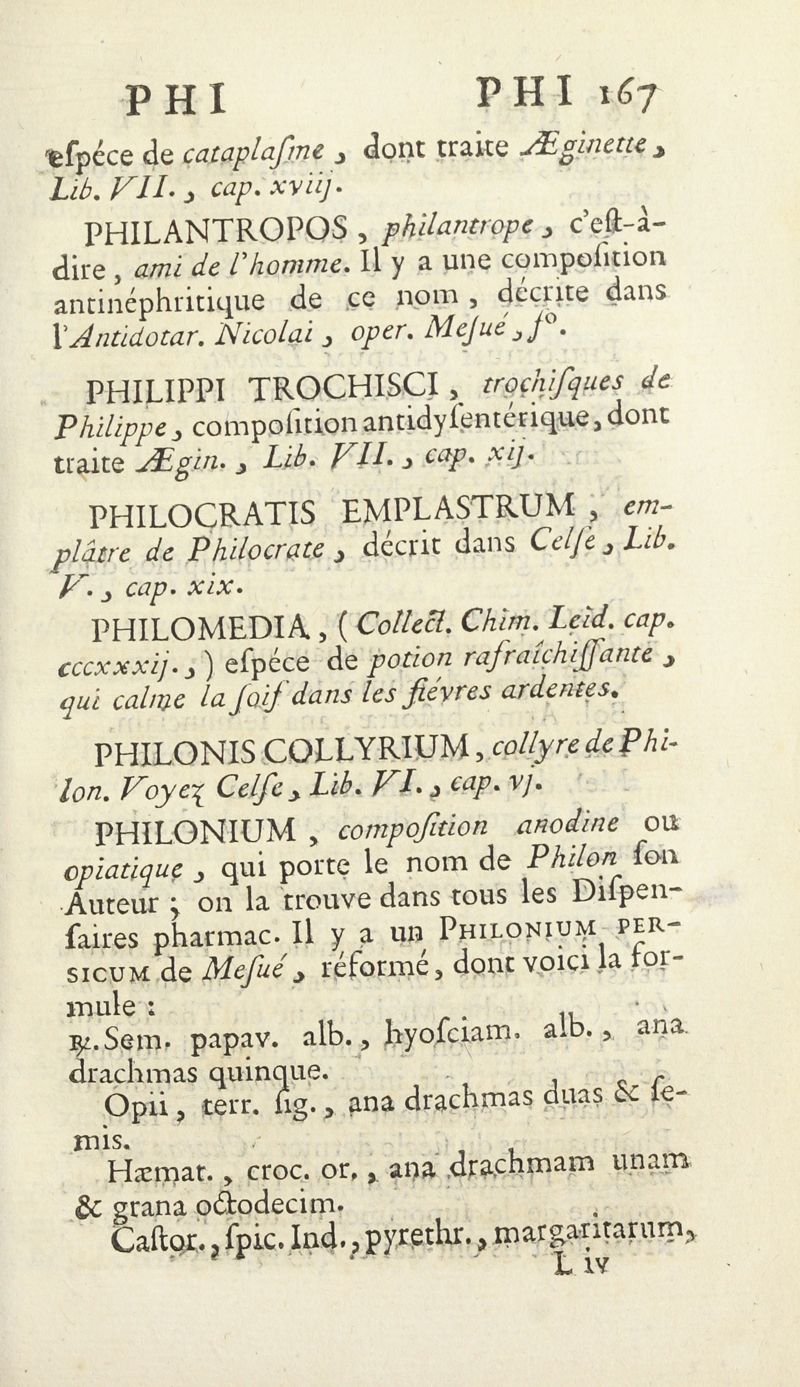 PHI PHI 167
eſpéce de cataplaſme, dont traite Æginette,
Lib. VII., cap. xviij.
PHILANTROPOS, philantrope, c'eſt-à-
dire, ami de l'homme. Il y a une compoſition
antinéphritique de ce nom, décrite dans
l'Antidotar. Nicolai, oper. Meſué, fº.
PHILIPPI TROCHISCI, trochiſques de
Philippe, compoſition antidyſentérique, dont
traite Ægin., Lib. VII., cap. xij.
PHILOCRATIS EMPLASTRUM, em-
plâtre de Philocrate, décrit dans Celſe, Lib.
V., cap. xix.
PHILOMEDIA, (Collect. Chim. Leid. cap.
cccxxxij.,) eſpéce de potion rafraîchiſſante,
qui calme la ſoif dans les fiévres ardentes.
PHILONIS COLLYRIUM, collyre de Phi-
lon. Voyez Celſe, Lib. VI., cap. vj.
PHILONIUM, compoſition anodine ou
opiatique, qui porte le nom de Philon ſon
Auteur; on la trouve dans tous les Diſpen-
ſaires pharmac. Il y a un PHILONIUM PER-
SICUM de Meſué, réformé, dont voici la for-
mule :
℞. Sem. papav. alb., hyoſciam. alb., ana
drachmas quinque.
Opii, terr. ſig., ana drachmas duas & ſe-
mis.
Hæmat., croc. or., ana drachmam unam
& grana octodecim.
Caſtor., ſpic. Ind., pyrethr., margaritarum,
L iv